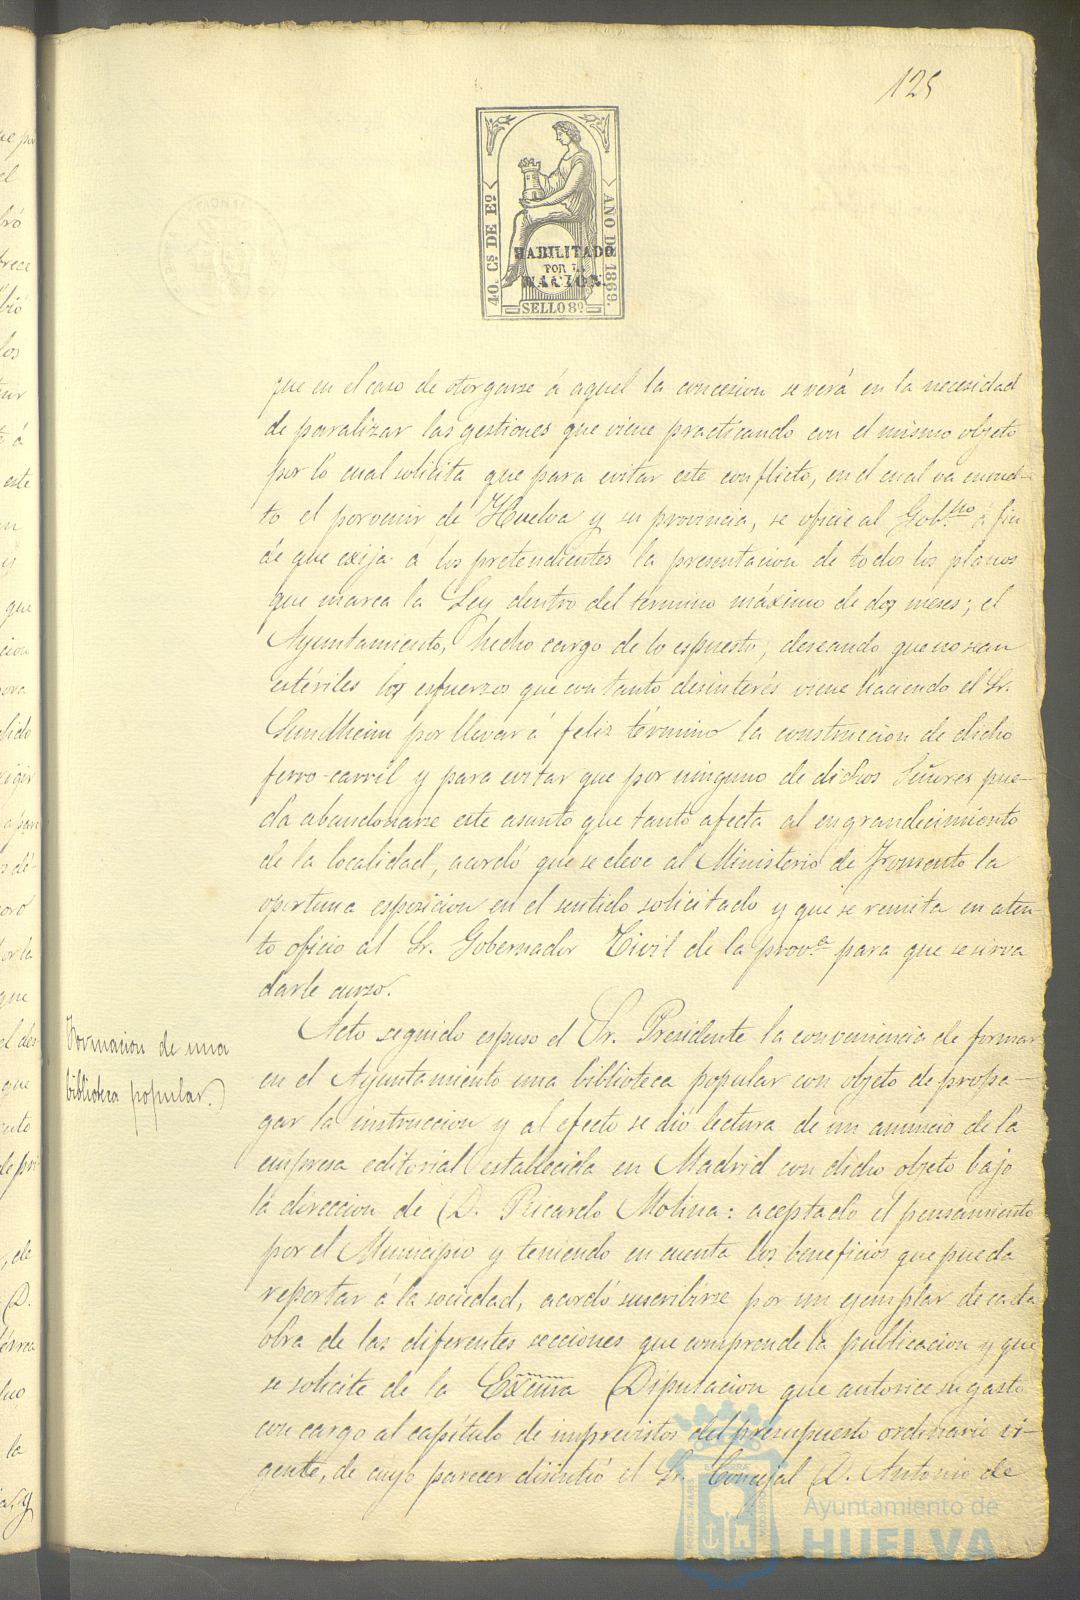 125
40. Cs DE Eº
AÑO DE 1869.
HABILITADO
POR LA
NACION.
SELLO 8º
que en el caso de otorgarse á aquel la concesion se verá en la necesidad
de paralizar las gestiones que viene practicando con el mismo objeto
por lo cual solicita que para evitar este conflicto, en el cual va envuel-
to el porvenir de Huelva y su provincia, se oficie al Gob.no á fin
de que exija á los pretendientes la presentacion de todos los planos
que marca la Ley dentro del término máximo de dos meses; el
Ayuntamiento, hecho cargo de lo espuesto, deseando que no sean
estériles los esfuerzos que con tanto desinterés viene haciendo el Sr.
Sundheim por llevar á feliz término la construccion de dicho
ferro-carril y para evitar que por ninguno de dichos Señores pue-
da abandonarse este asunto que tanto afecta al engrandecimiento
de la localidad, acordó que se eleve al Ministerio de Fomento la
oportuna esposicion en el sentido solicitado y que se remita en aten-
to oficio al Sr. Gobernador Civil de la prov.a para que se sirva
darle curso.
Formacion de una
biblioteca popular.)
Acto seguido espuso el Sr. Presidente la conveniencia de formar
en el Ayuntamiento una biblioteca popular con objeto de propa-
gar la instruccion y al efecto se dió lectura de un anuncio de la
empresa editorial establecida en Madrid con dicho objeto bajo
la direccion de D. Ricardo Molina: aceptado el pensamiento
por el Municipio y teniendo en cuenta los beneficios que pueda
reportar á la sociedad, acordó suscribirse por un ejemplar de cada
obra de las diferentes secciones que comprende la publicacion y que
se solicite de la Excma Diputacion que autorice su gasto
con cargo al capítulo de imprevistos del presupuesto ordinario vi-
gente, de cuyo parecer disintió el Sr. Concejal D. Antonio de
Ayuntamiento de
HUELVA